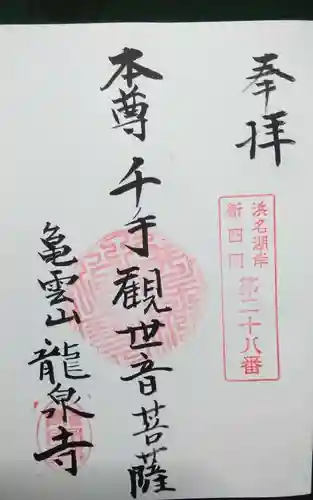 奉拝
浜名湖岸
新四国 第二十八番
本尊 千手観世音菩薩
亀雲山 龍泉寺